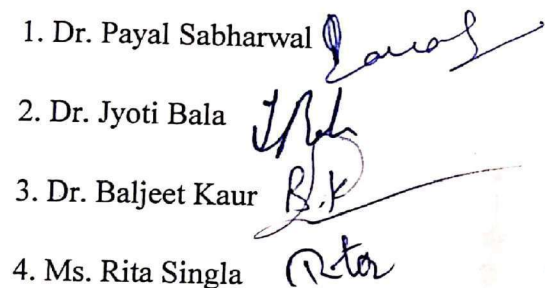 1. Dr. Payal Sabharwal
2. Dr. Jyoti Bala
3. Dr. Baljeet Kaur B.K
4. Ms. Rita Singla Rita